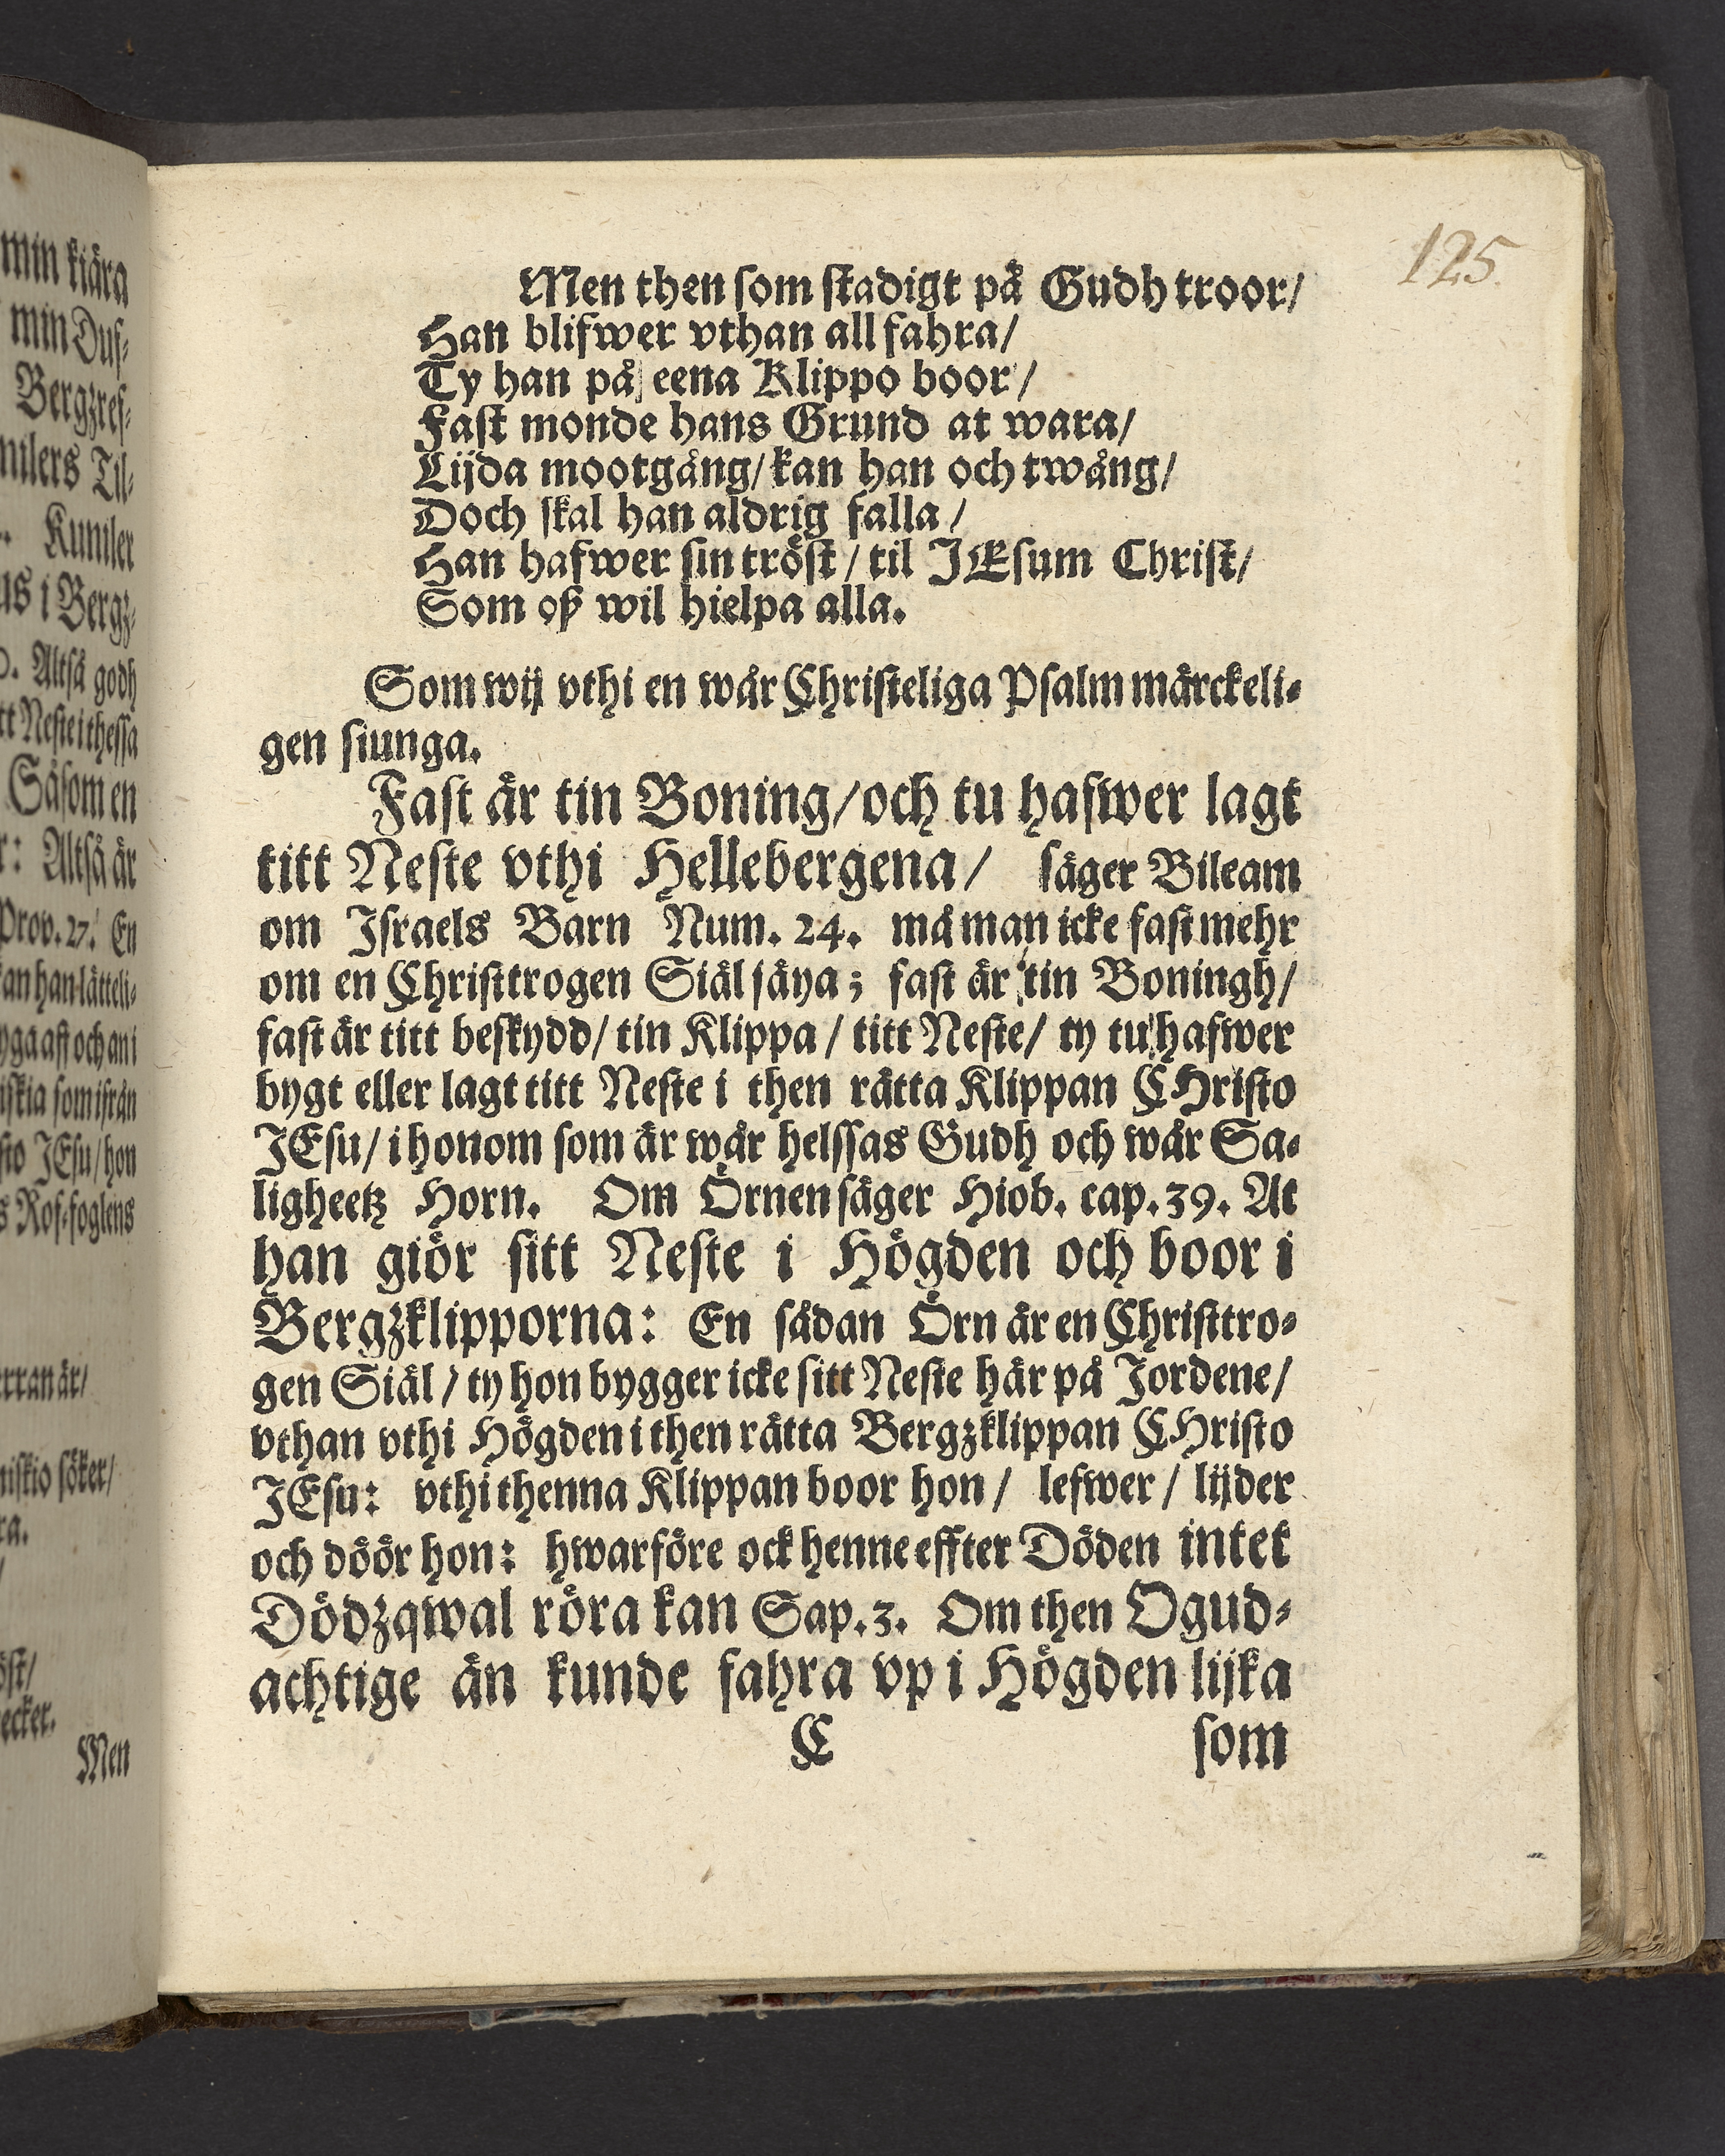 min kiära
min Duf-
Bergzref-
mlers Til-
Kumler
us i Bergz-
Altså godh
tt Neste i thessa
Såsom en
r: Altså är
Prov. 27. En
kan han lätteli-
yga aff och an i
iskia som ifrån
sto JEsu/ hon
s Rof-foglens
erran är/
niskio söker/
ra.
öst/
ecker.
Men
125.
Men then som stadigt på Gudh troor/
Han blifwer vthan all fahra/
Ty han på eena Klippo boor/
Fast monde hans Grund at wara/
Lijda mootgång/ kan han och twång/
Doch skal han aldrig falla/
Han hafwer sin tröst/ til JEsum Christ/
Som oß wil hielpa alla.
Som wij vthi en wår Christeliga Psalm märckeli-
gen siunga.
Fast är tin Boning/ och tu hafwer lagt
titt Neste vthi Hellebergena/ säger Bileam
om Israels Barn Num. 24. må man icke fast mehr
om en Christtrogen Siäl säya; fast är tin Boningh/
fast är titt beskydd/ tin Klippa/ titt Neste/ ty tu hafwer
bygt eller lagt titt Neste i then rätta Klippan CHristo
JEsu/ i honom som är wår helssas Gudh och wår Sa-
ligheetz Horn. Om Örnen säger Hiob. cap. 39. At
han giör sitt Neste i Högden och boor i
Bergzklipporna: En sådan Örn är en Christtro-
gen Siäl/ ty hon bygger icke sitt Neste här på Jordene/
vthan vthi Högden i then rätta Bergzklippan CHristo
JEsu: vthi thenna Klippan boor hon/ lefwer/ lijder
och döör hon: hwarföre ock henne effter Döden intet
Dödzqwal röra kan Sap. 3. Om then Ogud-
achtige än kunde fahra vp i Högden lijka
C som